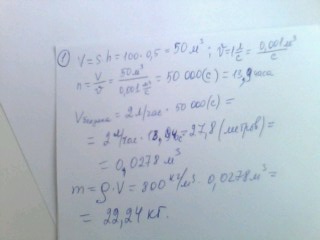 ① V = S h = 100 · 0,5 = 50 м³; v = 1 л/с = 0,001 м³/с
n = V/v = 50 м³ / 0,001 м³/с = 50 000 (с) = 13,9 часа
V бензина = 2 л/час · 50 000 (с) =
= 2 л/час · = 27,8 (литров) =
= 0,0278 м³
m = ρ · V = 800 кг/м³ · 0,0278 м³ =
= 22,24 кг.